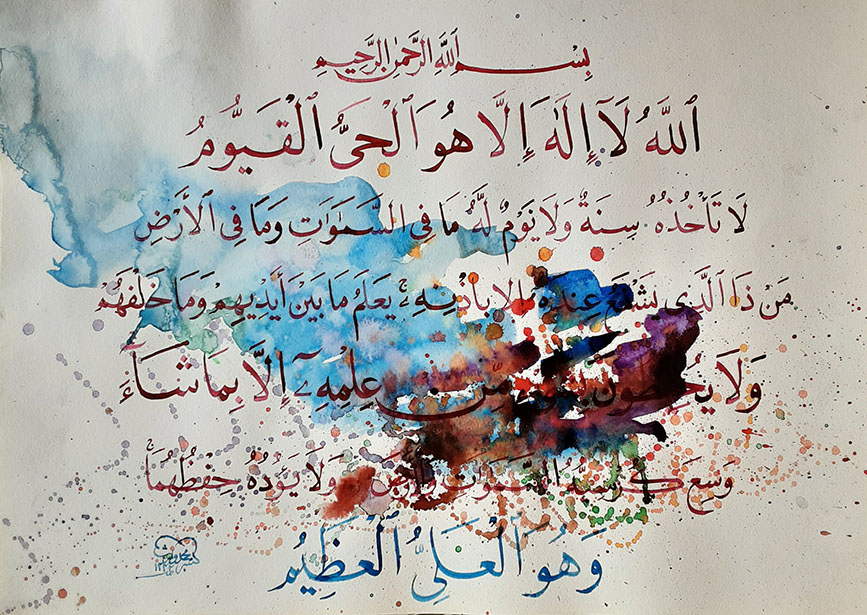 بِسْمِ ٱللَّهِ الرَّحْمَٰنِ الرَّحِيمِ
ٱللَّهُ لَآ إِلَٰهَ إِلَّا هُوَ ٱلْحَىُّ ٱلْقَيُّومُ
لَا تَأْخُذُهُۥ سِنَةٌ وَلَا نَوْمٌ لَّهُۥ مَا فِى السَّمَٰوَٰتِ وَمَا فِى ٱلْأَرْضِ
مَن ذَا ٱلَّذِى يَشْفَعُ عِندَهُۥٓ إِلَّا بِإِذْنِهِۦ يَعْلَمُ مَا بَيْنَ أَيْدِيهِمْ وَمَا خَلْفَهُمْ
وَلَا يُحِيطُونَ مِّنْ عِلْمِهِۦٓ إِلَّا بِمَا شَآءَ
وَسِعَ كُرْسِيُّهُ السَّمَٰوَٰتِ وَالْأَرْضَ وَلَا يَـُٔودُهُۥ حِفْظُهُمَا
وَهُوَ ٱلْعَلِىُّ ٱلْعَظِيمُ